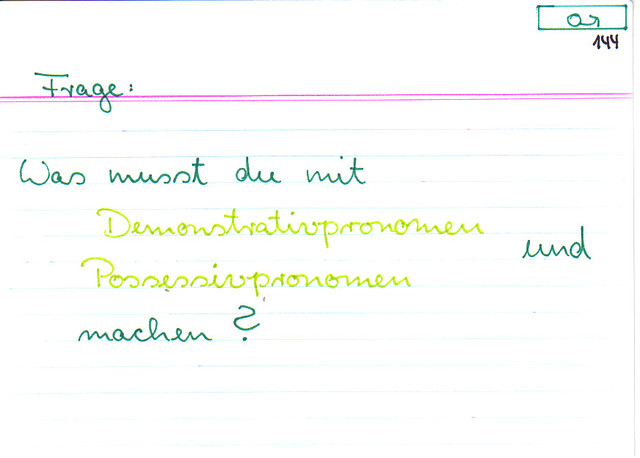 144
Frage:
Was musst du mit
Demonstrativpronomen und
Possessivpronomen
machen?